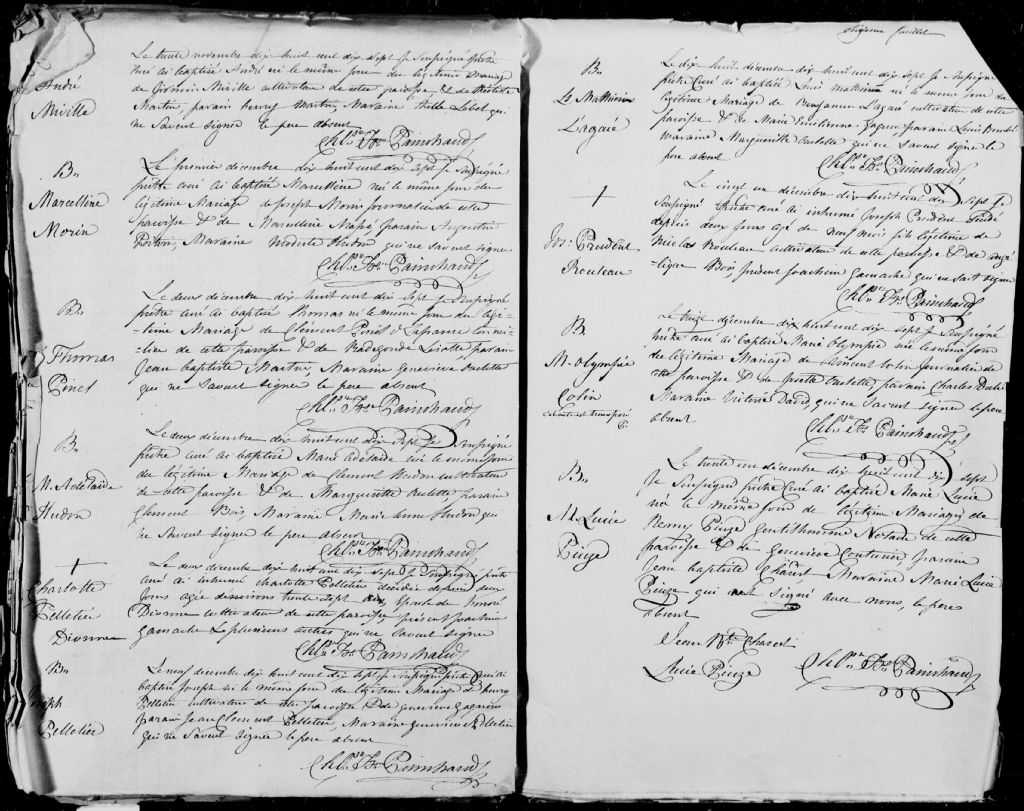 Le trente novembre dix huit cent dix sept je soussigné prêtre
André
curé ai baptisé André né le même jour du légitime mariage
de Germain Miville cultivateur de cette paroisse & de
Miville
Martin, parain henry Martin Maraine Lebel qui
ne savent signer le pere absent
Chls. Frs. Painchaud
Bn
Le premier décembre dix huit cent dix sept je soussigné
prêtre curé ai baptisé Marcelline née le même jour du
Marcelline
légitime Mariage de Joseph Morin journalier de cette
paroisse & de Marcelline parain Augustin
Morin
Maraine Modeste Hudon qui ne savent signer
Chls. Frs. Painchaud
Le deux décembre dix huit cent dix sept je soussigné
Bn
prêtre curé ai baptisé thomas né le même jour du légi-
-time Mariage de Clément Pinet
de cette paroisse & de Radegonde Lizotte, parain
Thomas
Jean baptiste Martin, Maraine Genevieve Ouellette
Pinet
qui ne savent signer le pere absent
Chls. Frs. Painchaud
Le deux décembre dix huit cent dix sept je soussigné
Bn
prêtre curé ai baptisé Marie adelaide née le même jour
du légitime Mariage de Clement Hudon cultivateur
M. Adelaide
de cette paroisse & de Marguerite Ouellette parain
Hudon
Clement Bois, Maraine Marie Anne Hudon qui
ne savent signer le pere absent
Chls. Frs. Painchaud
+
Le deux décembre dix huit cent dix sept je soussigné prêtre
curé ai inhumé charlotte Pelletier décédée depuis deux
Charlotte
jours agée d'environs trente sept ans, Epouse de honoré
Pelletier
Dionne cultivateur de cette paroisse présent joachim
Dionne
gamache & plusieurs autres qui ne savent signer
Chls. Frs. Painchaud
Bn
Le neuf décembre dix huit cent dix sept je soussigné prêtre Curé ai
baptisé Joseph né le même jour du légitime Mariage de henry
Joseph
Pelletier cultivateur de cette paroisse & de genevieve Gagnon
parain Jean Clement Pelletier, Maraine genevieve Pelletier
Pelletier
qui ne savent signer le pere absent
Chls. Frs. Painchaud
feuillet
Bn
Le dix huit décembre dix huit cent dix sept je soussigné
prêtre Curé ai baptisé Louis mathurin né le même jour du
Ls Mathurin
légitime Mariage de Benjamin Lagacé cultivateur de cette
paroisse & de Marie parain Louis
L'agacé
maraine Marguerite Ouellette qui ne savent signer le
pere absent
Chls. Frs. Painchaud
+
Le vingt un décembre dix huit cent dix sept je
soussigné prêtre curé ai inhumé Joseph Prudent décédé
depuis deux jours agé de neuf mois fils légitime de
Jos: Prudent
Nicolas Rouleau cultivateur de cette paroisse & de angé-
Rouleau
-lique Bois présent Joachim gamache qui ne sait signer
Chls. Frs. Painchaud
Le treize décembre dix huit cent dix sept je soussigné
Bn
prêtre curé ai baptisé Marie Olympié née le même jour
du légitime Mariage de Clément Cotin Journalier de
M. Olympié
cette paroisse & de Ouellette, parain Charles Dubé
Cotin
Maraine Victoire David, qui ne savent signer le pere
cet acte est transposé
absent
Chls. Frs. Painchaud
Le trente un décembre dix huit cent dix sept
Bn
Je soussigné prêtre Curé ai baptisé Marie Lucie
née le même jour du légitime Mariage de
M. Lucie
Remy Piuze Gentilhomme Notaire de cette
Piuze
paroisse & de Genevieve Couturier, parain
Jean baptiste Charest Maraine Marie Lucie
Piuze qui ont signé avec nous, le pere
absent
Jean Bte Charest
Lucie Piuze
Chls. Frs. Painchaud